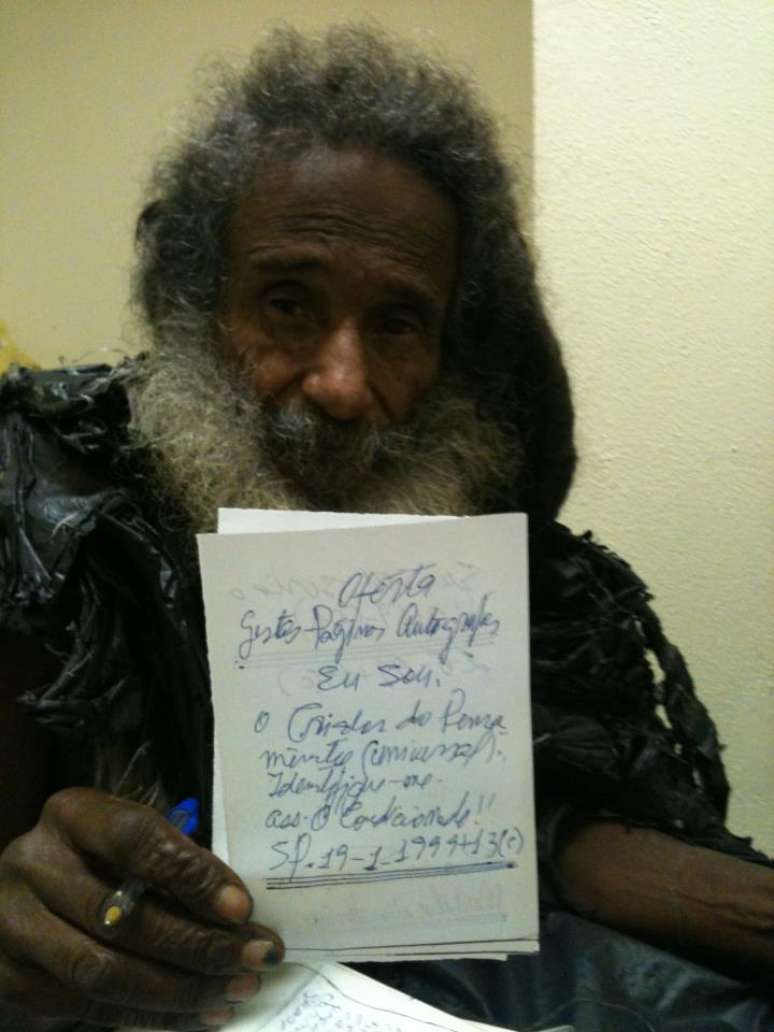 Oferta
Gestos Páginas Autografas
Eu Sou.
O Criador do Pensa
mento Universal.
Identifique-me.
ass. O Condicionado!!
SP. 19-1-1999+13(c)